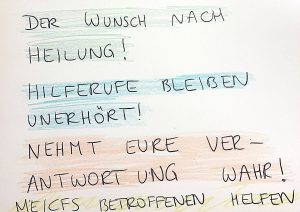 DER WUNSCH NACH
HEILUNG!
HILFERUFE BLEIBEN
UNERHÖRT!
NEHMT EURE VER-
ANTWORTUNG WAHR!
ME/CFS BETROFFENEN HELFEN